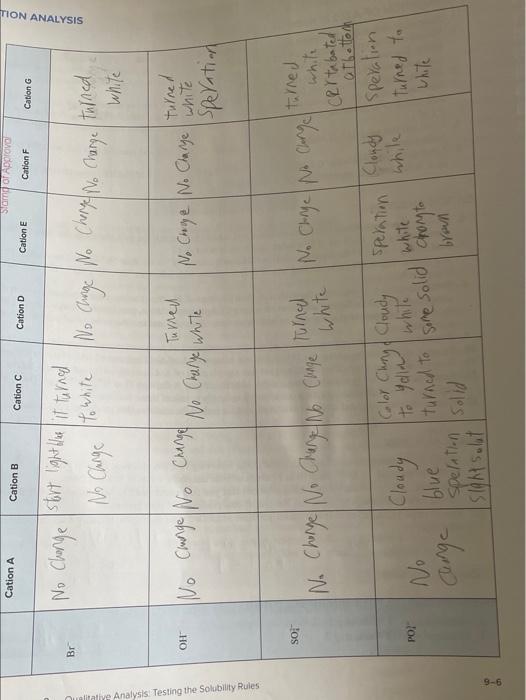 TION ANALYSIS
Stamp of Approval
Cation A
Cation B
Cation C
Cation D
Cation E
Cation F
Cation G
Br⁻
No Change
start light blue
No Change
it turned
to white
No Change
No Change
No Change
turned
white
OH⁻
No Change
No Change
No Change
Turned
white
No Change
No Change
turned
white
speration
No Change
No Change
No Change
Turned
white
No Change
No Change
turned
white
at bottom
No
Cange
Cloudy
blue
speration
Color Chang
to
turned to
solid
Cloudy
white
some solid
speration
white
chang to
brown
Cloudy
white
speration
turned to
white
Qualitative Analysis: Testing the Solubility Rules
9-6